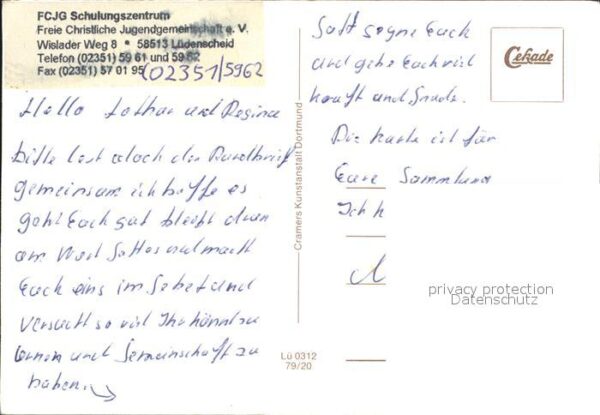 FCJG Schulungszentrum
Freie Christliche Jugendgemeinschaft e. V.
Wislader Weg 8 • 58513 Lüdenscheid
Telefon (02351) 59 61 und 59 62
Fax (02351) 57 01 95
(02351/5962
Hallo Lothar und Regina
bitte lest doch den Rundbrief
gemeinsam ich hoffe es
geht Euch gut bleibt dran
am Wort Gottes und macht
Euch eins im Gebet und
versucht so viel Ihr könnt zu
lernen und Gemeinschaft zu
haben.
Gott segne Euch
und gebe Euch viel
Kraft und Gnade.
Die Karte ist für
Eure Sammlung
Ich h
Cekade
Cramers Kunstanstalt Dortmund
Lü 0312
79/20
privacy protection
Datenschutz